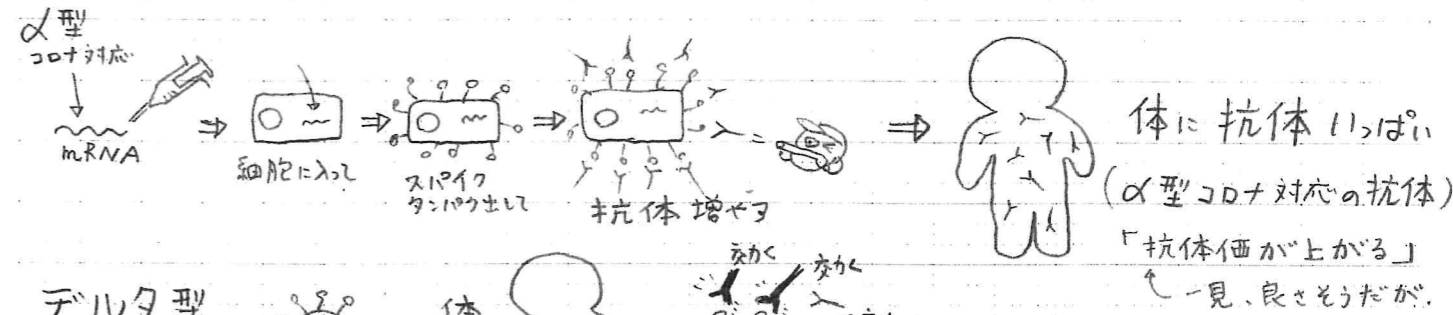 α型
コロナ対応
mRNA
細胞に入って
スパイク
タンパク出して
抗体増やす
体に抗体いっぱい
(α型コロナ対応の抗体)
「抗体価が上がる」
一見、良さそうだが、
デルタ型
体
効く
効く